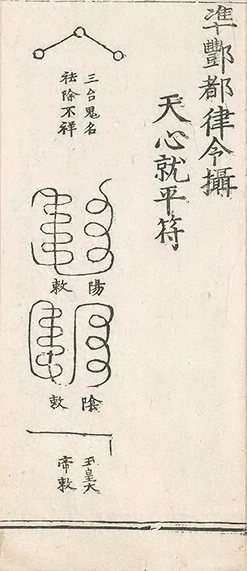 準酆都律令攝
天心就平符
三台鬼名
祛除不祥
陽
敕
陰
敕
玉皇大
帝敕